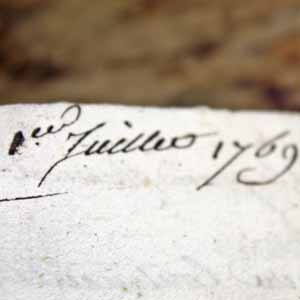 1er Juillet 1769